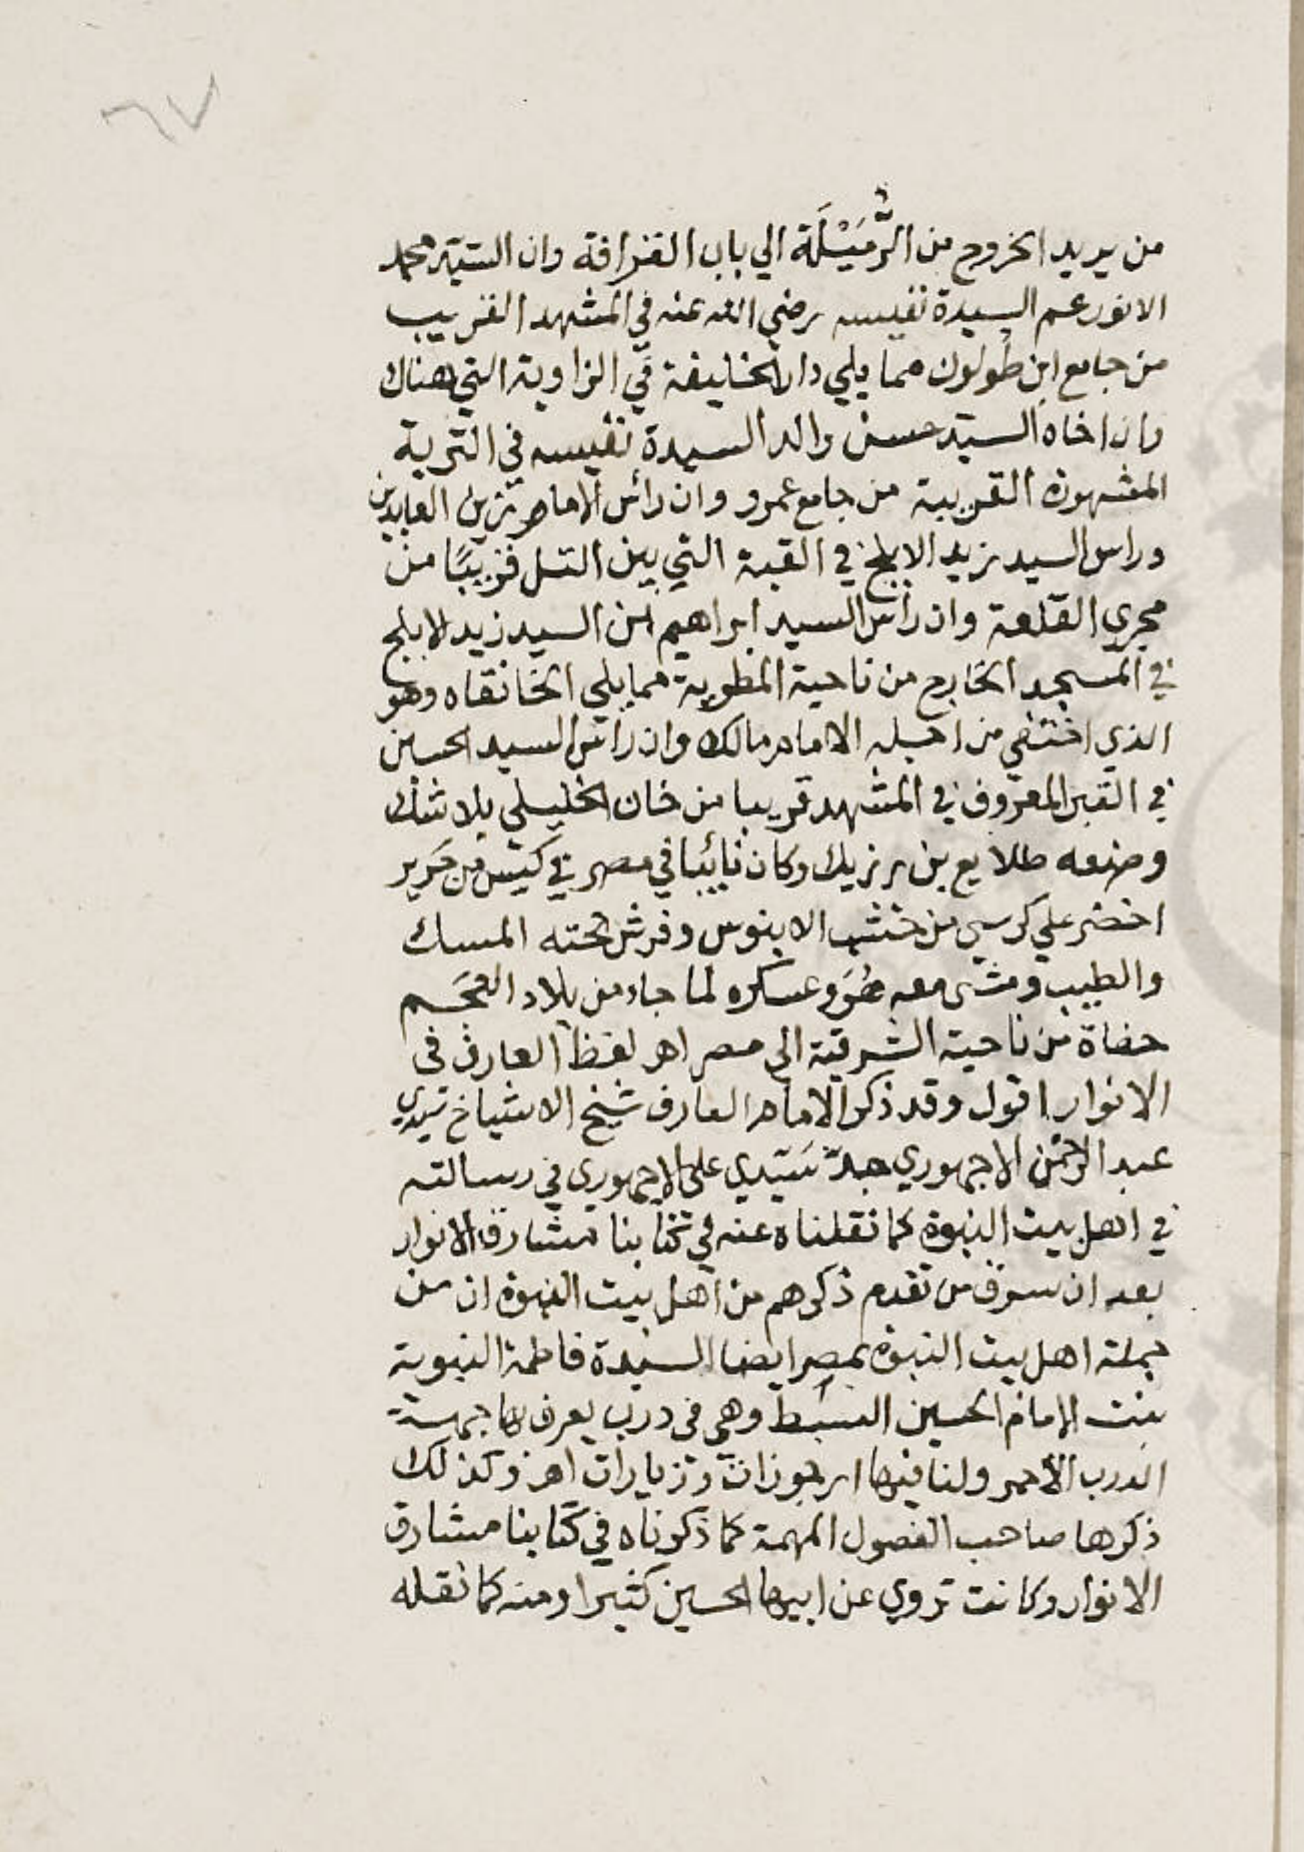 ٦٧
من يريد الخروج من الرُّمَيْلَة الي باب القرافة وان السيد محمد
الانور عم السيدة نفيسه رضي الله عنه في المشهد القريب
من جامع ابن طُولون مما يلي دار الخليفة في الزاوية التي هناك
وان اخاه السيد حسن والد السيدة نفيسه في التربة
المشهورة القريبة من جامع عمرو وان رأس الامام زين العابدين
وراس السيد زيد الابلج في القبة التي بين التل قريبًا من
مجري القلعة وان رأس السيد ابراهيم ابن السيد زيد الابلج
في المسجد الخارج من ناحية المطرية مما يلي الخانقاه وهو
الذي اختفي من اجله الامام مالك وان رأس السيد الحسين
في القبر المعروف في المشهد قريبا من خان الخليلي بلا شك
وضعه طلايع بن رزيك وكان نائبا في مصر في كيس من حَرير
اخضر علي كرسي من خشب الابنوس وفرش تحته المسك
والطيب ومشى معه هُوَ وعسكره لما جاء من بلاد العَجَم
حفاة من ناحية الشرقية الى مصر اهـ لفظ العارف في
الانوار اقول وقد ذكر الامام العارف شيخ الاشياخ سيدي
عبد الرحمن الاجهوري جدّ سَيّدي على الاجهوري في رسالته
في اهل بيت النبوة كما نقلناه عنه في كتابنا مشارق الانوار
بعد ان سرق من تقدم ذكرهم من اهل بيت النبوة ان من
جملة اهل بيت النبوة بمصر ايضا السيدة فاطمة النبوية
بنت الامام الحسين السبط وهي في درب يعرف بها جهة
الدرب الأحمر ولنا فيها ارجوزات وزيارات اهـ وكذلك
ذكرها صاحب الفصول المهمة كما ذكرناه في كتابنا مشارق
الانوار وكانت تروي عن ابيها الحسين كثيرا ومنه كما نقله